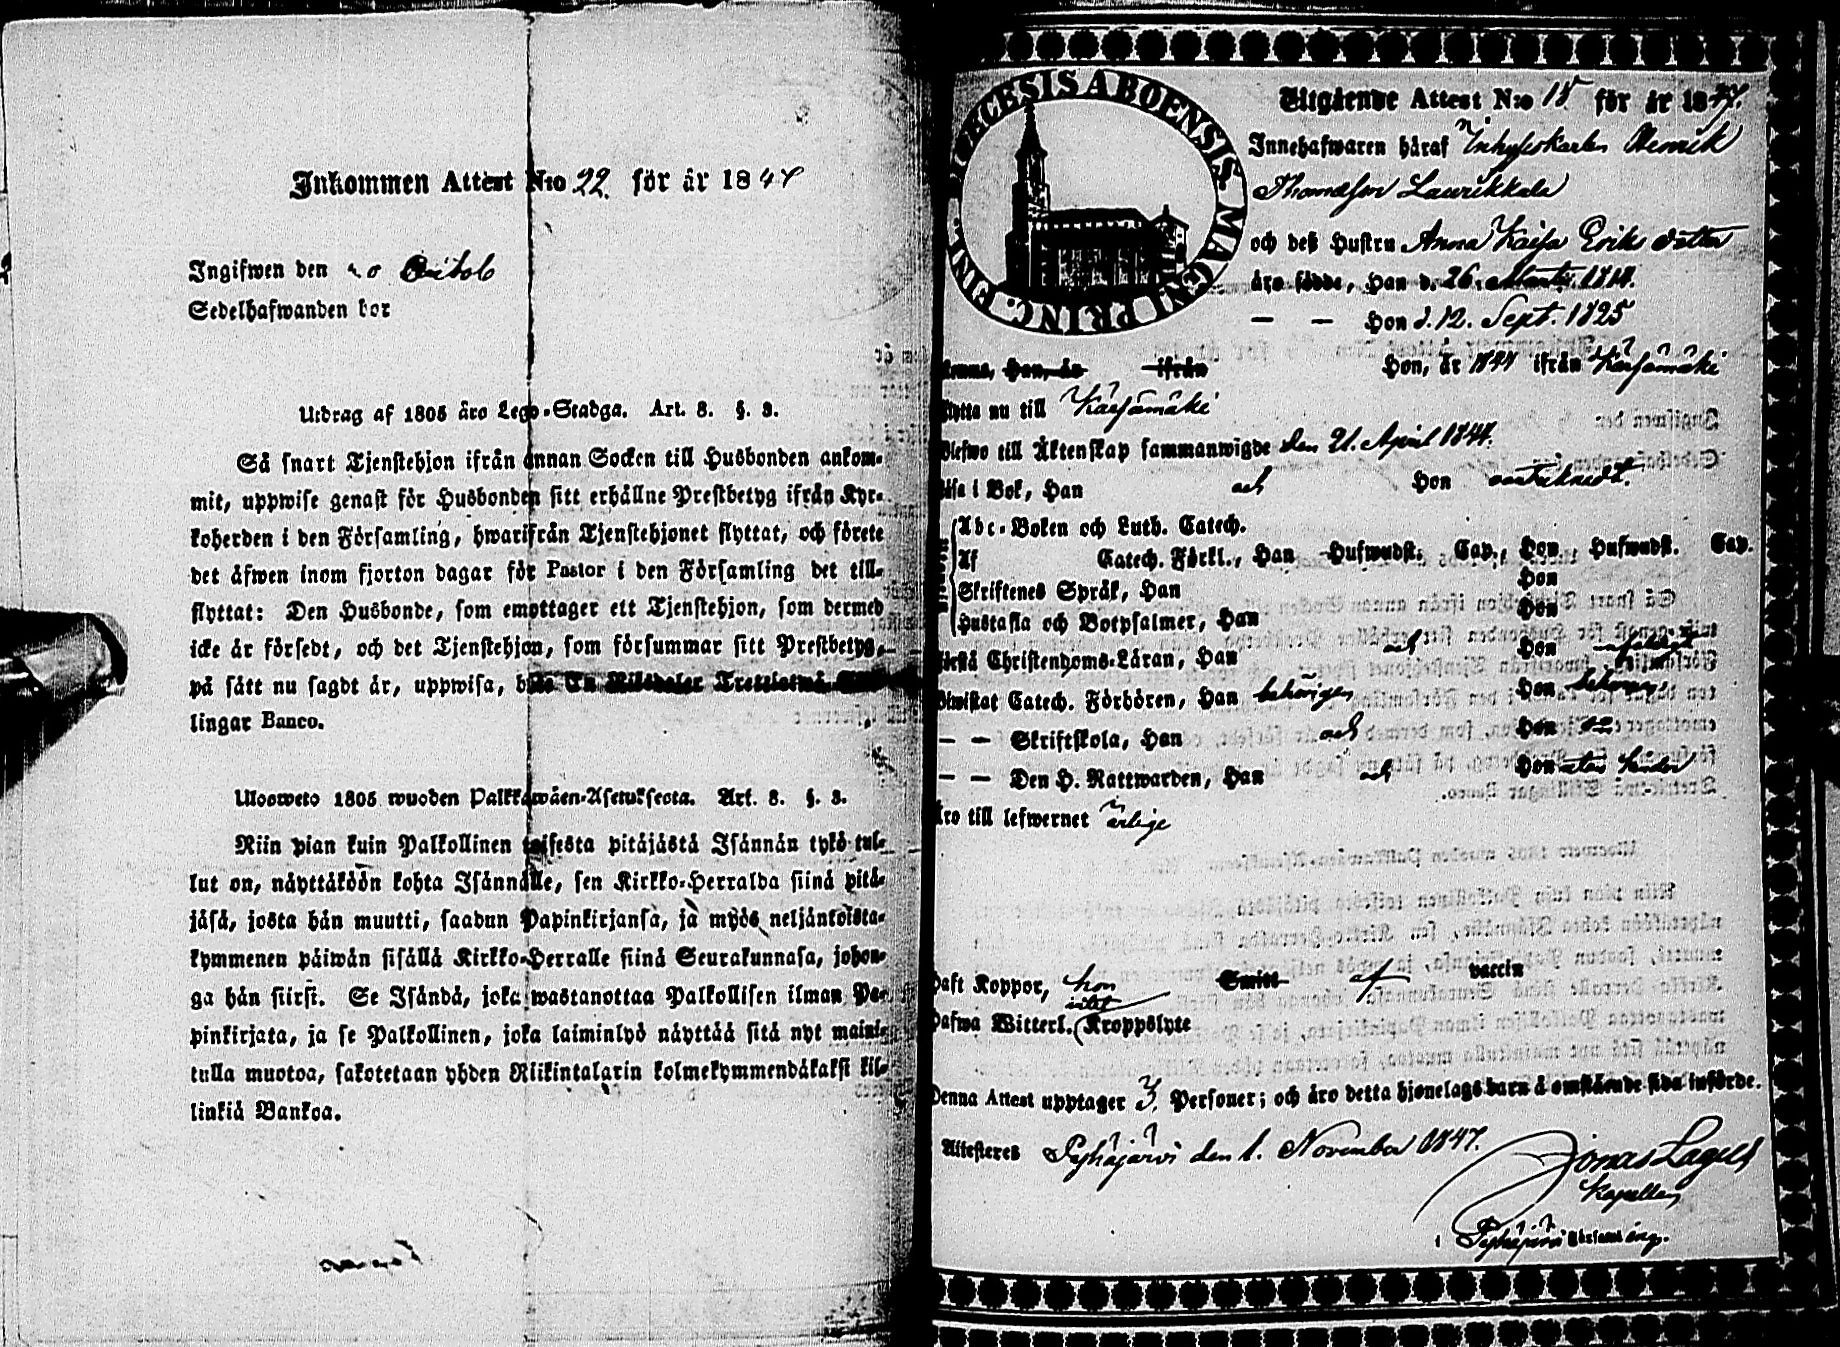 Inkommen Attest N:o 22. för år 1847
Ingifwen den
Sedelhafwanden bor
Utdrag af 1805 års Lego-Stadga. Art. 8. §. 3.
Så snart Tjenstehjon ifrån annan Socken till Husbonden ankom-
mit, uppwise genast för Husbonden sitt erhållne Prestbetyg ifrån Kyr-
koherden i den Församling, hwarifrån Tjenstehjonet flyttat, och förete
det äfwen inom fjorton dagar för Pastor i den Församling det till-
flyttat: Den Husbonde, som emottager ett Tjenstehjon, som dermed
icke är försedt, och det Tjenstehjon, som försummar sitt Prestbetyg,
på sätt nu sagdt är, uppwisa, böte En Riksdaler Trettiotwå Skil-
lingar Banco.
Ulosweto 1805 wuoden Palkkawäen-Asetuksesta. Art. 8. §. 3.
Niin pian kuin Palkollinen toisesta pitäjästä Isännän tykö tul-
lut on, näyttäköön kohta Isännälle, sen Kirkko-Herralda siinä pitä-
jäsä, josta hän muutti, saadun Papinkirjansa, ja myös neljäntoista-
kymmenen päiwän sisällä Kirkko-Herralle siinä Seurakunnasa, johon-
ga hän siirst. Se Isändä, joka wastanottaa Palkollisen ilman Pa-
pinkirjata, ja se Palkollinen, joka laiminlyö näyttää sitä nyt maini-
tulla muotoa, sakotetaan yhden Riikintalarin kolmekymmendäkaksi kil-
linkiä Bankoa.
DIOECESIS ABOENSIS MAGNI PRINC. FINL.
Utgående Attest N:o 18 för år 1847.
Innehafwaren häraf Inhyseskarlen Henrik
Thomasson Laurikkala
och deß Hustru Anna Kaisa Eriks dotter
äro födde, Han d. 26. Martii 1814.
— — Hon d. 12. Sept. 1825
Komne, Han, år ifrån Hon, år 1844 ifrån Kärsämäki
Flytta nu till Kärsämäki
Blefwo till Äktenskap sammanwigde den 21. April 1844.
Läsa i Bok, Han och Hon
Abc-Boken och Luth. Catech.
Af Catech. Förkl., Han Hufwudst. Cap., Hon Hufwudst. Cap.
Skriftenes Språk, Han Hon
Hustafla och Botpsalmer, Han Hon
Förstå Christendoms-Läran, Han och Hon
Biwistat Catech. Förhören, Han behörigen Hon
— — Skriftskola, Han och Hon
— — Den H. Nattwarden, Han och Hon utan hinder
Äro till lefwernet ärlige
Haft Koppor, hon Smitt af vaccin
Hafwa Witterl. intet Kroppslyte
Denna Attest upptager 3. Personer; och äro detta hjonelags barn å omstående sida införde.
Attesteres Pyhäjärvi den 1. November 1847.
Jonas Lagus
Kapellan
i Pyhäjärvi Församling.